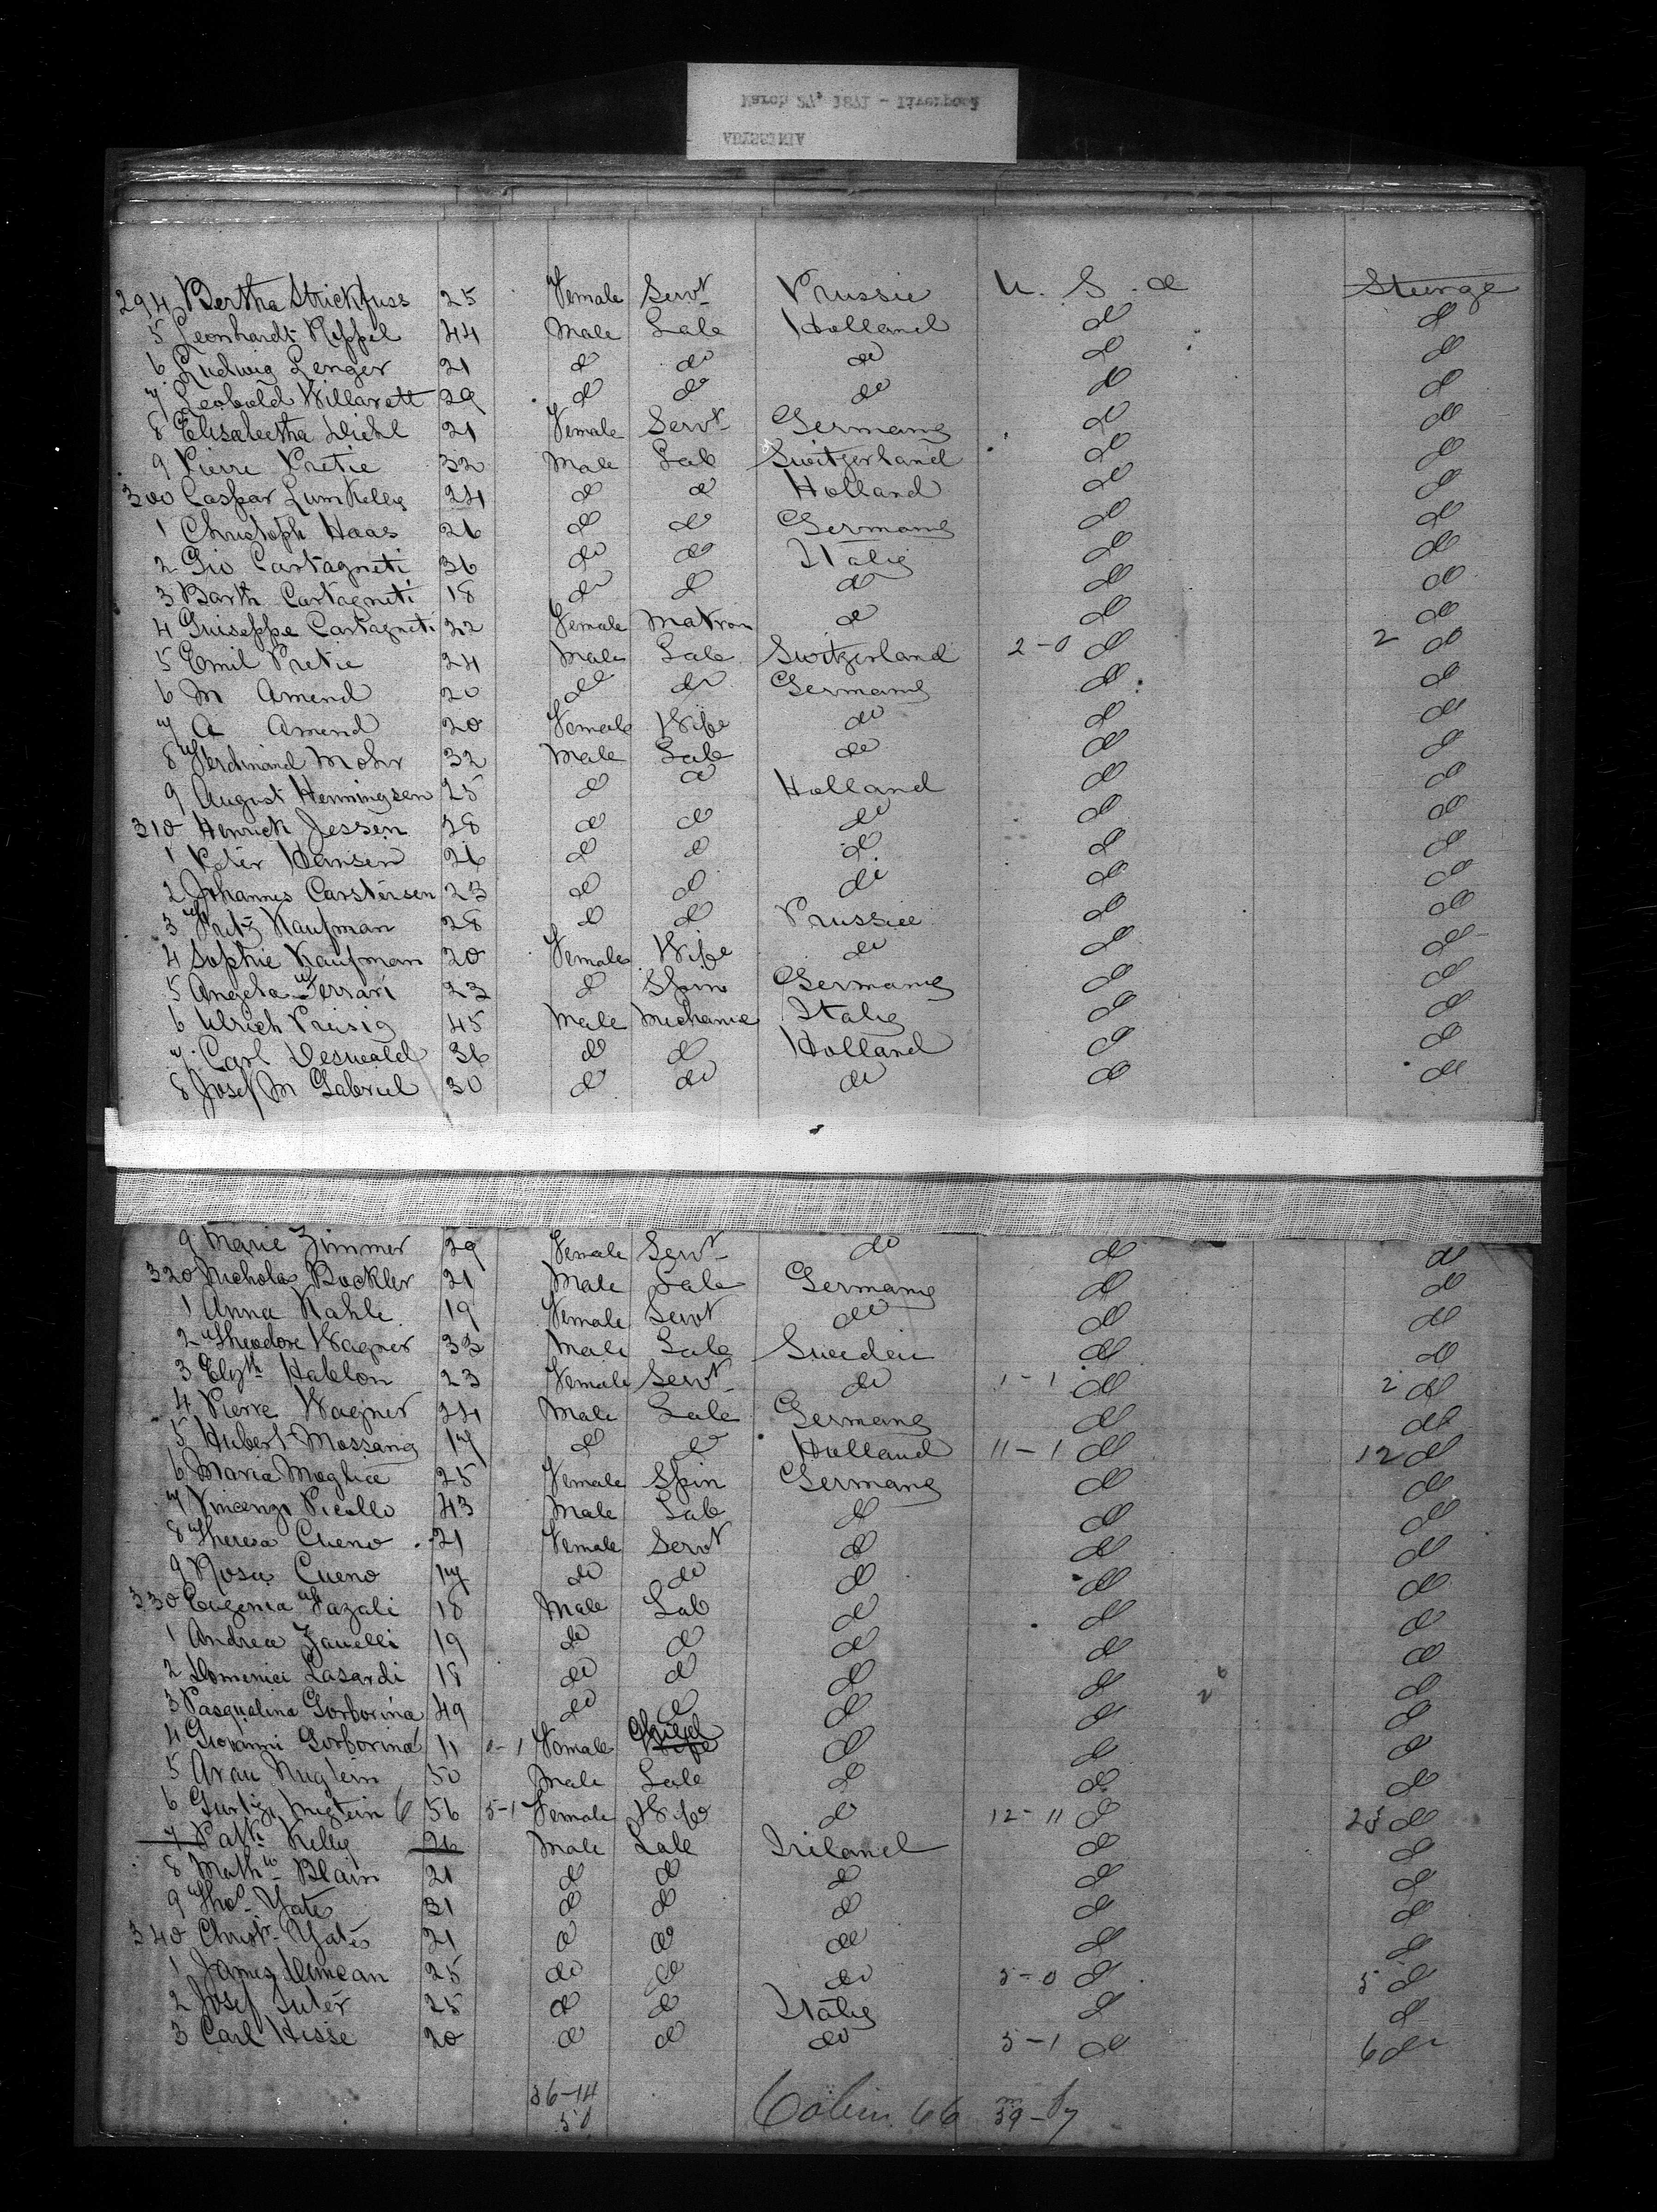 ABYSSINIA
March 27, 1871 - Liverpool
294 Bertha Strickfuss 25 Female Servt Prussia U. S. a Steerge
5 Leonhardt Kippel 44 Male Lab Holland do do
6 Ludwig Lenger 21 do do do do do
7 Leobold Willarett 29 do do do do do
8 Elisabetha Diehl 21 Female Servt Germany do do
9 Pierre Pretie 32 Male Lab Switzerland do do
300 Caspar 24 do do Holland do do
1 Christoph Haas 26 do do Germany do do
2 Gio Castagneti 36 do do Italy do do
3 Barth Castagneti 18 do do do do do
4 Guiseppe Castagneti 22 Female Matron do do do
5 Emil Pretie 24 Male Lab Switzerland 2-0 do 2 do
6 M Amend 20 do do Germany do do
7 A Amend 20 Female Wife do do do
8 Ferdinand Mohr 32 Male Lab do do do
9 August Henningsen 25 do do Holland do do
310 Henrick Jessen 28 do do do do do
1 Peter Hansen 26 do do do do do
2 Johannes Carstensen 23 do do do do do
3 Fritz Kaufman 28 do do Prussia do do
4 Sophie Kaufman 20 Female Wife do do do
5 Angela Ferrari 23 do Spin Germany do do
6 Ulrich 45 Male Mechanic Italy do do
7 Carl 36 do do Holland do do
8 Josef M Gabriel 30 do do do do do
9 Marie Zimmer 29 Female Servt do do do
320 Nicholas Bockler 21 Male Lab Germany do do
1 Anna Kahle 19 Female Servt do do do
2 Theodore Wagner 33 Male Lab Sweden do do
3 Elizth Hablon 23 Female Servt do 1-1 do 2 do
4 Pierre Wagner 24 Male Lab Germany do do
5 Hubert Mossang 17 do do Holland 11-1 do 12 do
6 Maria Moglia 25 Female Spin Germany do do
7 Vincenzo Picollo 43 Male Lab do do do
8 Theresa Cueno 21 Female Servt do do do
9 Rosa Cueno 17 do do do do do
330 Eugenia Fazali 18 Male Lab do do do
1 Andrea Zanelli 19 do do do do do
2 Domenica Lasardi 18 do do do do do
3 Pasqualina Gorborina 49 do do do do do
4 Giovanni Gorborina 11 0-1 Female Child Wife do do do
5 50 Male Lab do do do
6 56 5-1 Female Wife do 12-11 do 23 do
7 Patk Kelly 26 Male Lab Ireland do do
8 Blain 21 do do do do do
9 Thos Yates 31 do do do do do
340 Christr Yates 21 do do do do do
1 James Duncan 25 do do do 5-0 do 5 do
2 Josef Suter 25 do do Italy do do
3 Carl Hisse 20 do do do 5-1 do 6 do
36-14
50
Cabin 66